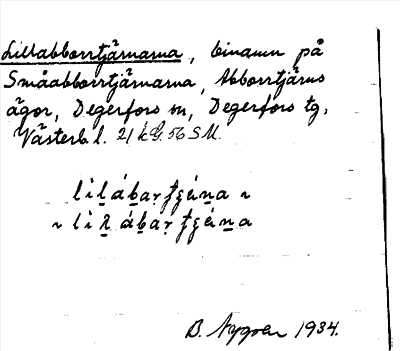 Lillabborrtjärnarna, binamn på
Småabborrtjärnarna, Abborrtjärns
ägor, Degerfors sn, Degerfors tg,
Västerb. l. 21 k G. 56 SM.
B. Nygren 1934.